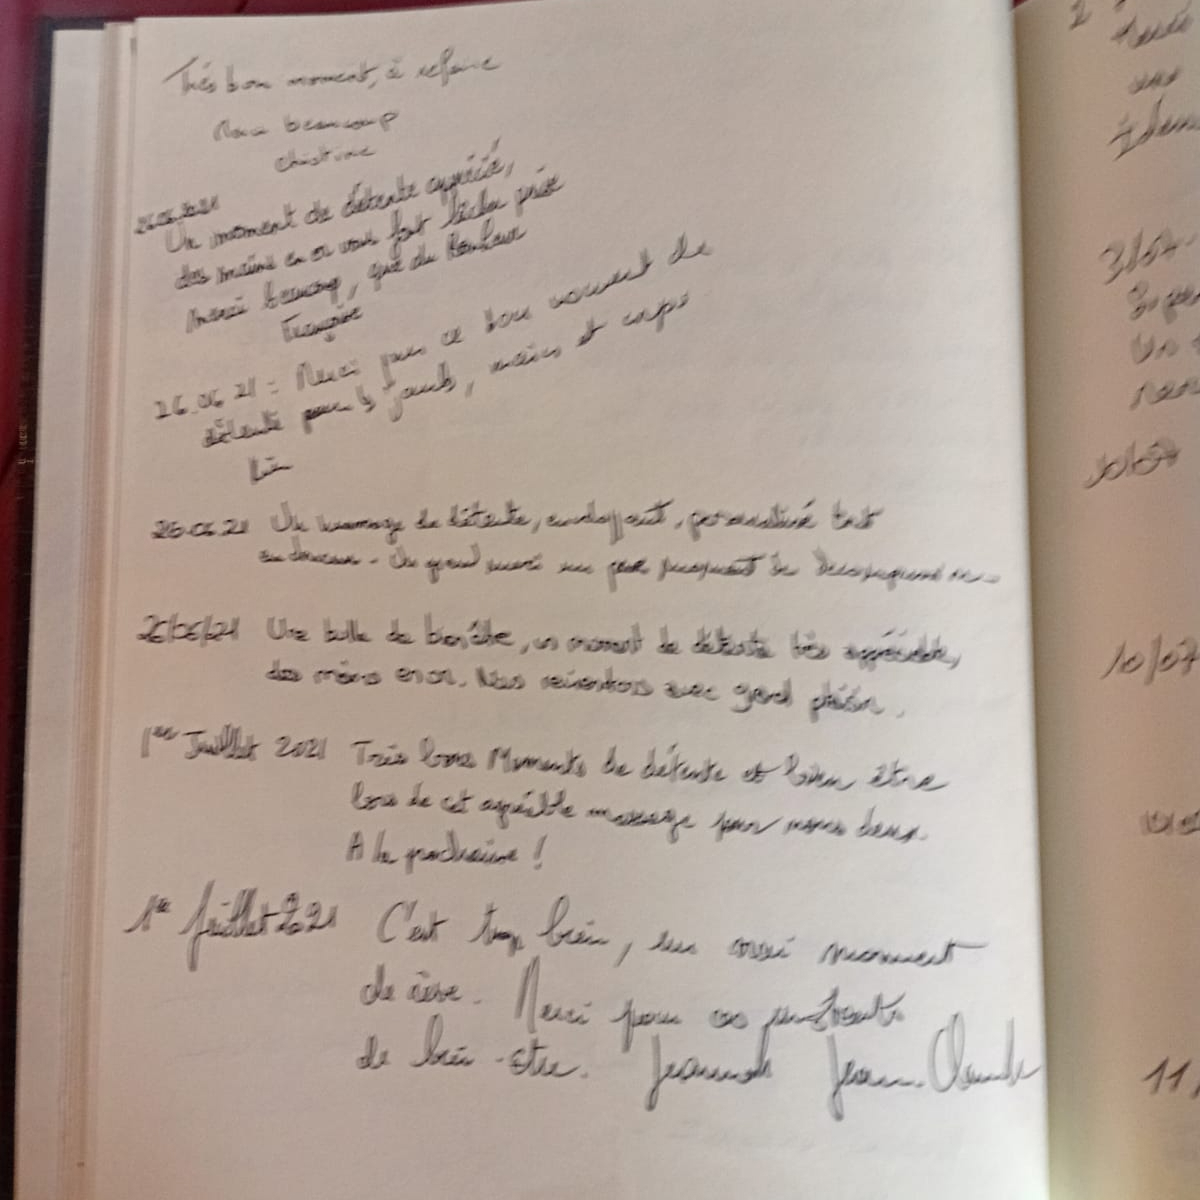 Très bon moment, à refaire
Merci beaucoup
Christine
26.06.2021
Un moment de détente apprécié,
des mains en or vous font lâcher prise
merci beaucoup, que du Bonheur
Françoise
26.06 21 : Merci pour ce bon moment de
détente pour les pieds, mains et corps
26.06.21 Un massage de détente, enveloppant, personnalisé tout
en douceur. Un grand merci
26/06/21 Une bulle de bien être, un moment de détente très appréciable,
des mains en or. Nous reviendrons avec grand plaisir.
1er Juillet 2021 Très bons Moments de détente et bien être
lors de cet agréable massage pour nous deux.
A la prochaine !
1er Juillet 2021 C'est trop bien, un vrai moment
de rêve. Merci pour ces instants
de bien-être. Jean-Claude
2
3/07
Un
10/07
10/07
11/